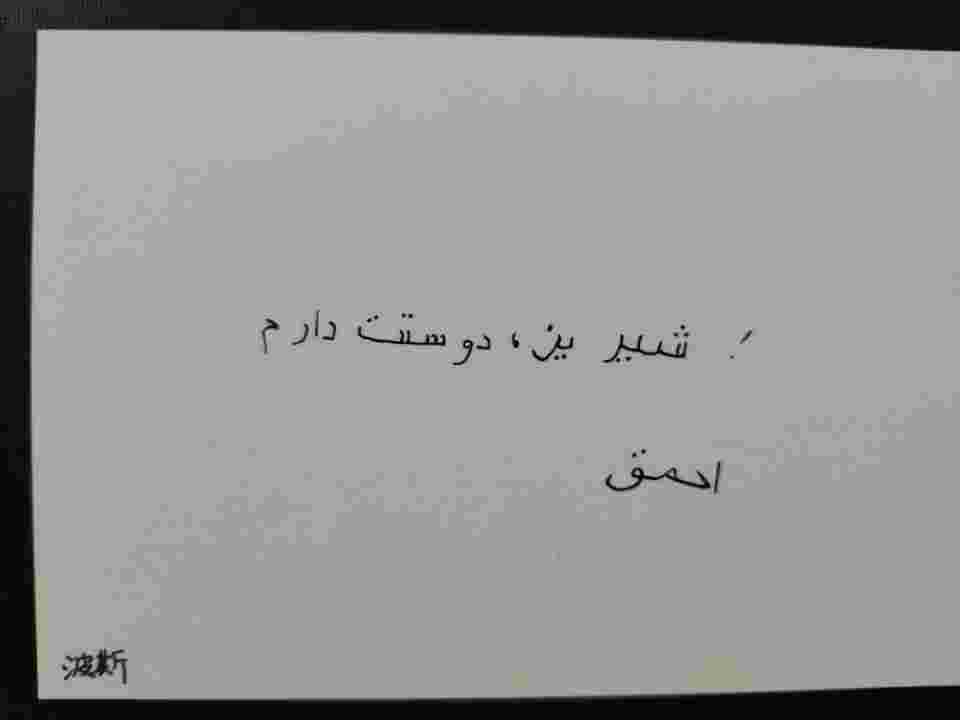 ! شیرین، دوستت دارم
احمق
波斯